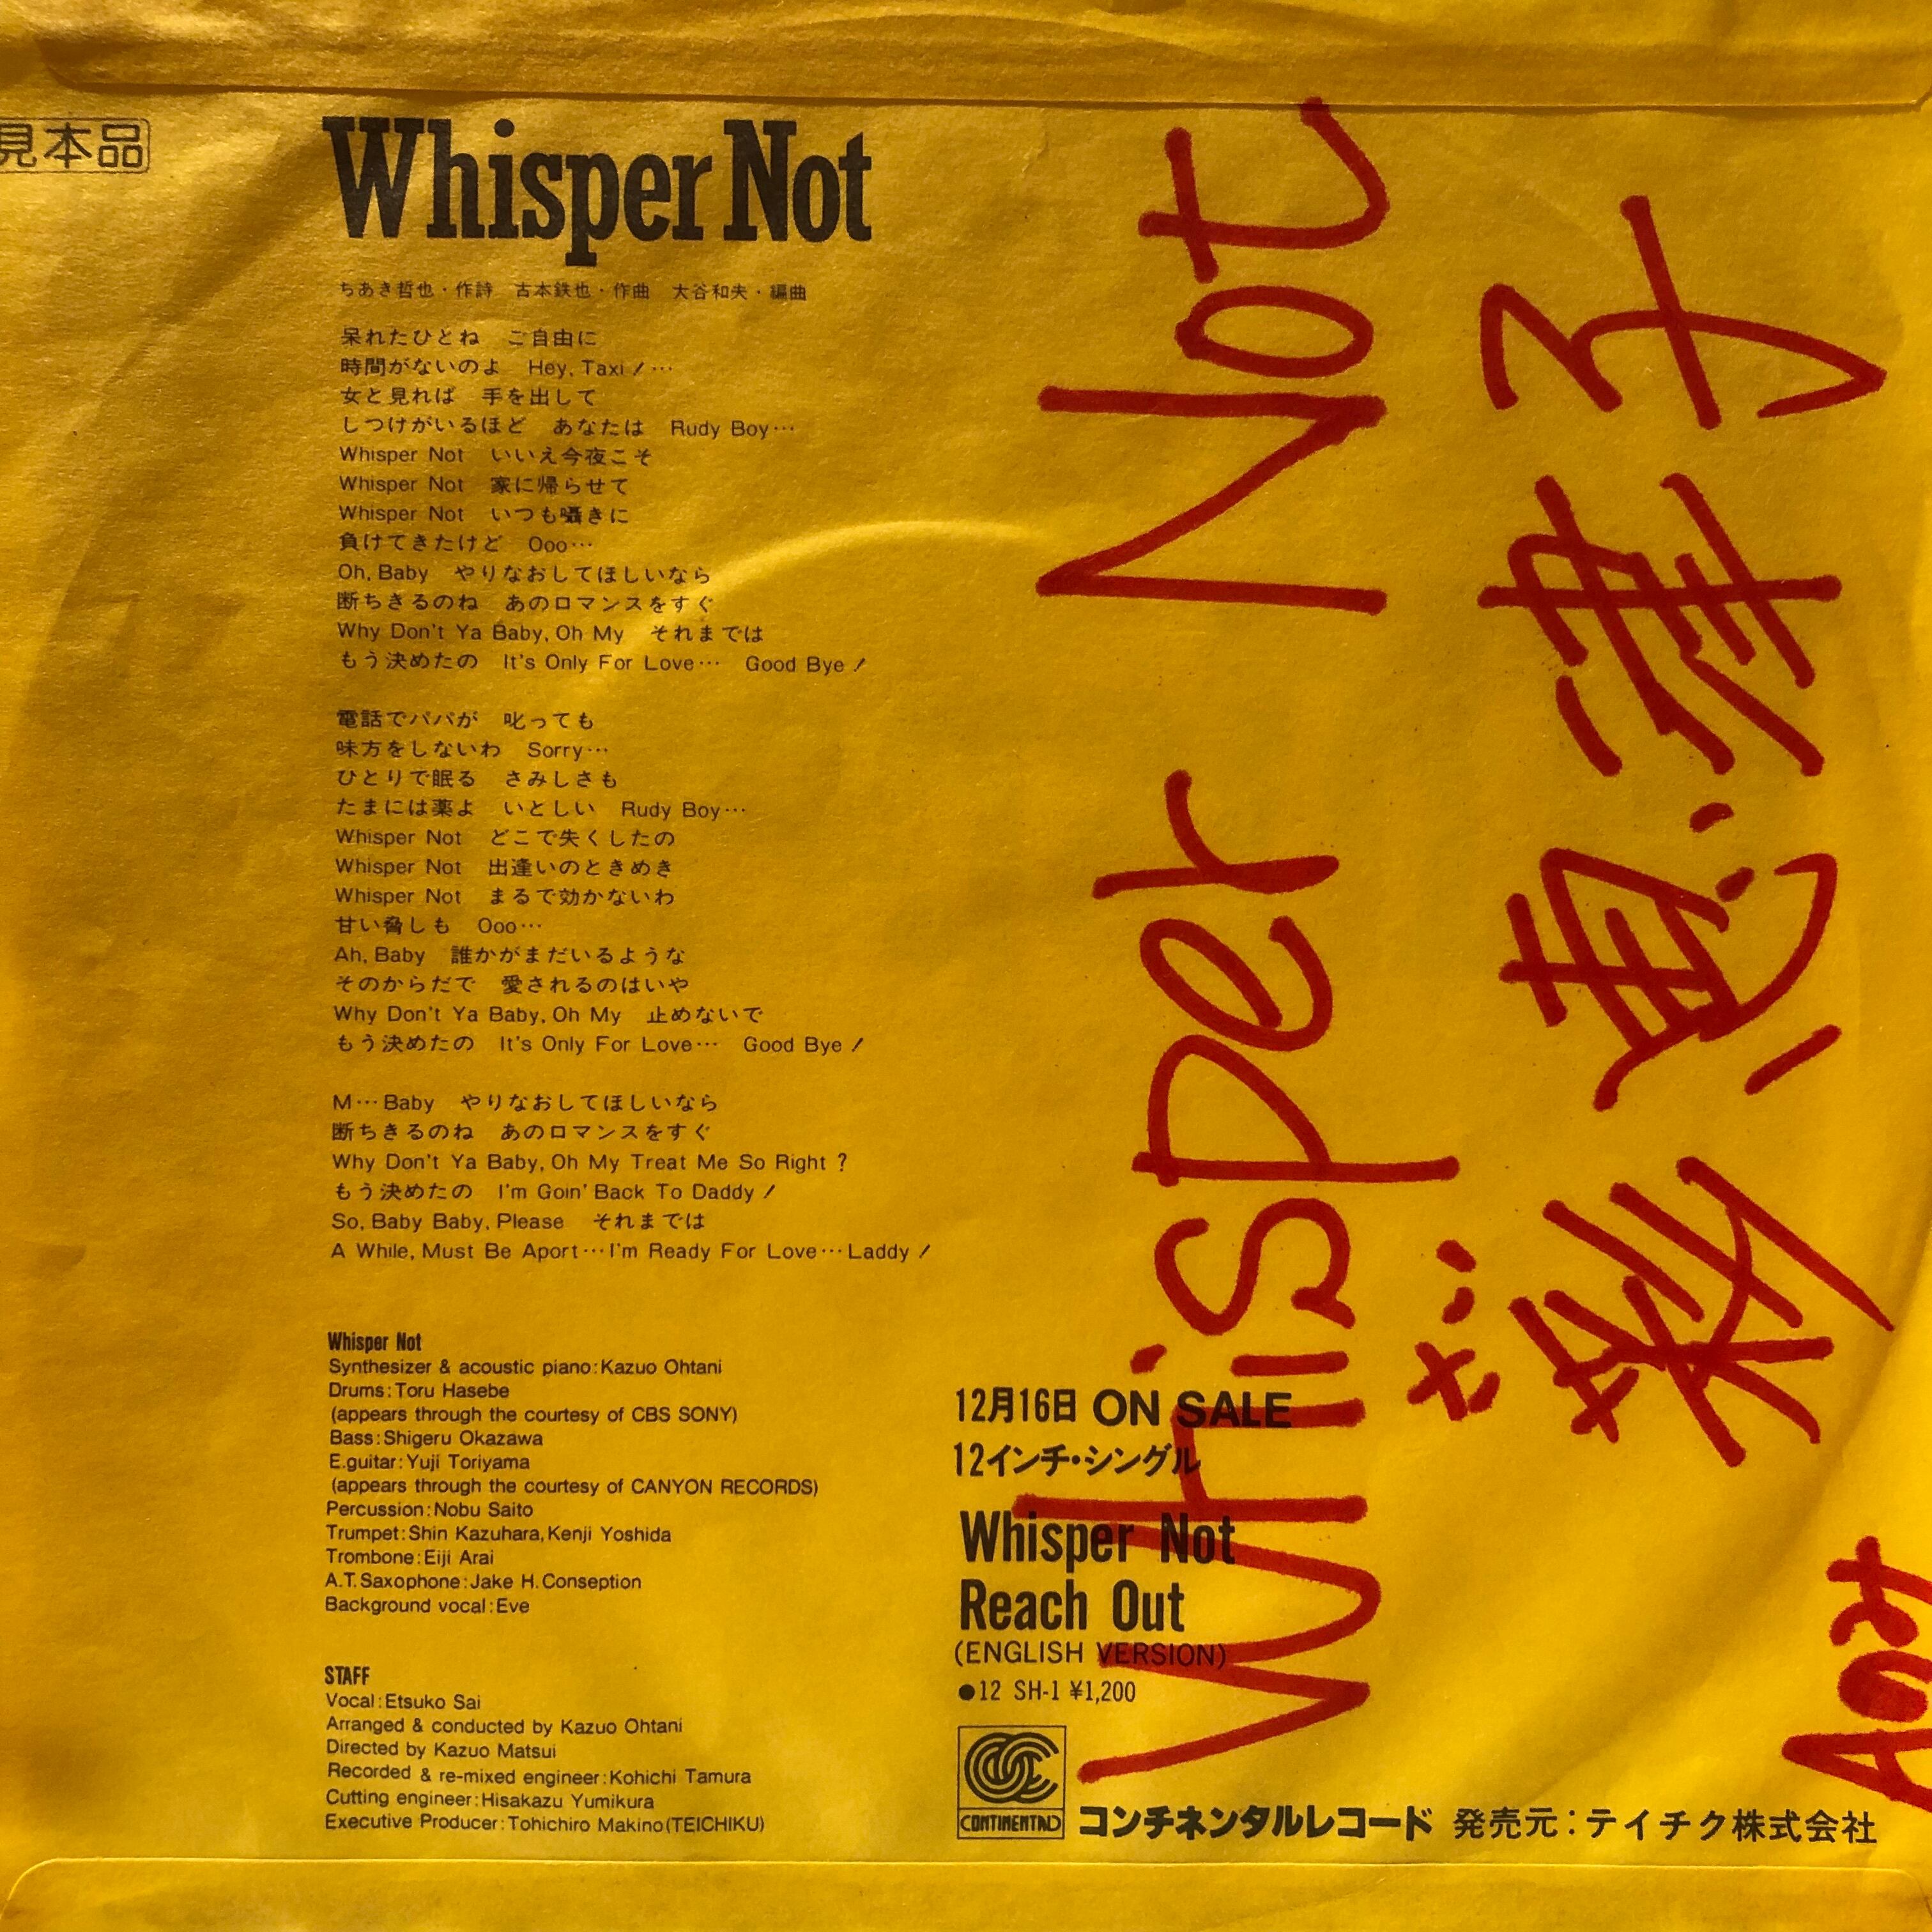 見本品
Whisper Not
ちあき哲也・作詩　古本鉄也・作曲　大谷和夫・編曲
呆れたひとね　ご自由に
時間がないのよ　Hey, Taxi！…
女と見れば　手を出して
しつけがいるほど　あなたは　Rudy Boy…
Whisper Not　いいえ今夜こそ
Whisper Not　家に帰らせて
Whisper Not　いつも囁きに
負けてきたけど　Ooo…
Oh, Baby　やりなおしてほしいなら
断ちきるのね　あのロマンスをすぐ
Why Don't Ya Baby, Oh My　それまでは
もう決めたの　It's Only For Love…　Good Bye！
電話でパパが　叱っても
味方をしないわ　Sorry…
ひとりで眠る　さみしさも
たまには薬よ　いとしい　Rudy Boy…
Whisper Not　どこで失くしたの
Whisper Not　出逢いのときめき
Whisper Not　まるで効かないわ
甘い脅しも　Ooo…
Ah, Baby　誰かがまだいるような
そのからだで　愛されるのはいや
Why Don't Ya Baby, Oh My　止めないで
もう決めたの　It's Only For Love…　Good Bye！
M…Baby　やりなおしてほしいなら
断ちきるのね　あのロマンスをすぐ
Why Don't Ya Baby, Oh My Treat Me So Right？
もう決めたの　I'm Goin' Back To Daddy！
So, Baby Baby, Please　それまでは
A While, Must Be Aport…I'm Ready For Love…Laddy！
Whisper Not
Synthesizer & acoustic piano:Kazuo Ohtani
Drums:Toru Hasebe
(appears through the courtesy of CBS SONY)
Bass:Shigeru Okazawa
E.guitar:Yuji Toriyama
(appears through the courtesy of CANYON RECORDS)
Percussion:Nobu Saito
Trumpet:Shin Kazuhara, Kenji Yoshida
Trombone:Eiji Arai
A.T.Saxophone:Jake H.Conseption
Background vocal:Eve
STAFF
Vocal:Etsuko Sai
Arranged & conducted by Kazuo Ohtani
Directed by Kazuo Matsui
Recorded & re-mixed engineer:Kohichi Tamura
Cutting engineer:Hisakazu Yumikura
Executive Producer:Tohichiro Makino(TEICHIKU)
12月16日 ON SALE
12インチ・シングル
Whisper Not
Reach Out
(ENGLISH VERSION)
●12 SH-1 ¥1,200
CONTINENTAL
コンチネンタルレコード 発売元：テイチク株式会社
Whisper Not
彩 恵津子